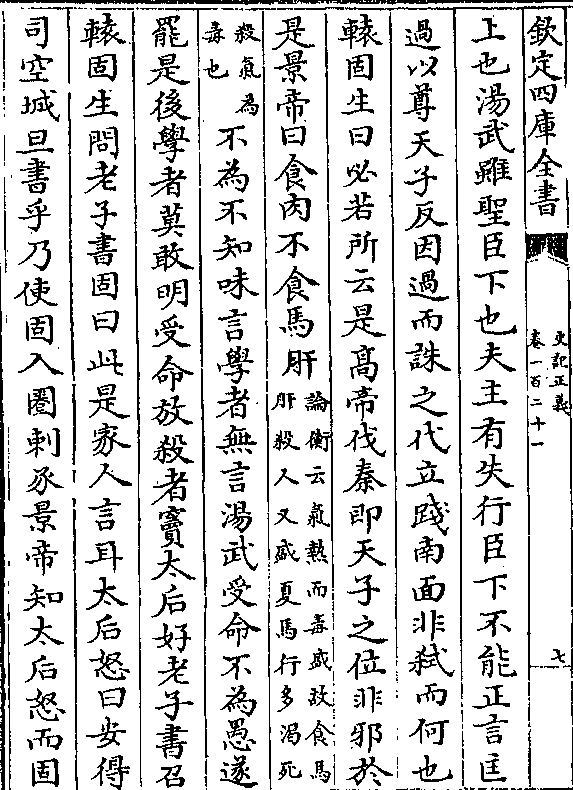 欽定四庫全書
史記正義
卷一百二十一
七
上也湯武雖聖臣下也夫主有失行臣下不能正言匡
過以尊天子反因過而誅之代立踐南面非弑而何也
轅固生曰必若所云是髙帝伐秦即天子之位非邪於
是景帝曰食肉不食馬肝
論衡云氣熱而毒盛故食馬
肝殺人又盛夏馬行多渴死
殺氣為
毒也
不為不知味言學者無言湯武受命不為愚遂
罷是後學者莫敢明受命放殺者竇太后好老子書召
轅固生問老子書固曰此是家人言耳太后怒曰安得
司空城旦書乎乃使固入圈刺豕景帝知太后怒而固